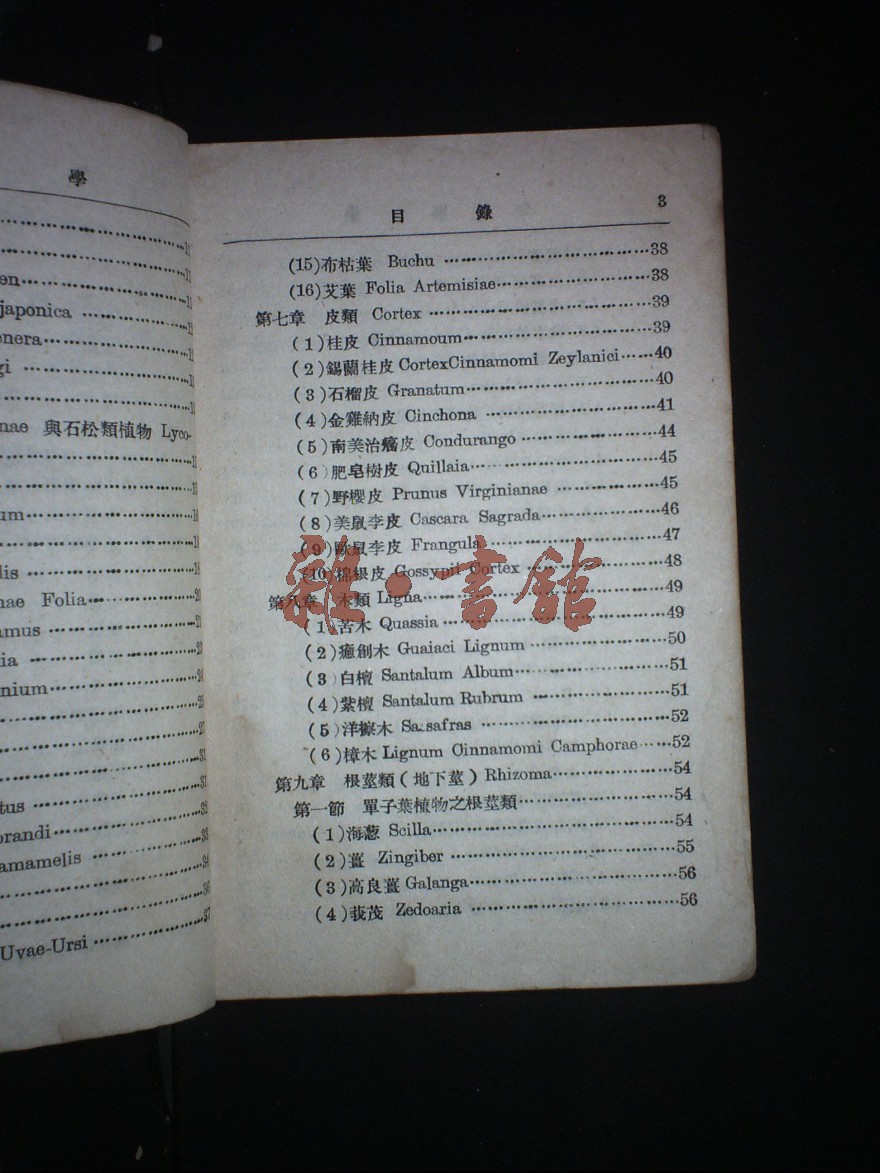 學
en
japonica
enera
gi
nae 與石松類植物 Lyco-
um
lis
nae Folia
amus
ia
nium
tus
orandi
amamelis
Uvae-Ursi
目錄 3
(15)布枯葉 Buchu ………………………38
(16)艾葉 Folia Artemisiae………………………38
第七章 皮類 Cortex ………………………39
(1)桂皮 Cinnamoum………………………39
(2)錫蘭桂皮CortexCinnamomi Zeylanici……40
(3)石榴皮 Granatum………………………40
(4)金雞納皮 Cinchona ………………………41
(5)南美治癌皮 Condurango ………………………44
(6)肥皂樹皮 Quillaia………………………45
(7)野櫻皮 Prunus Virginianae ………………45
(8)美鼠李皮 Cascara Sagrada………………46
(9)歐鼠李皮 Frangula………………………47
(10)棉根皮 Gossypii Cortex ………………48
第八章 木類 Ligna………………………49
(1)苦木 Quassia ………………………49
(2)癒創木 Guaiaci Lignum ………………50
(3)白檀 Santalum Album………………51
(4)紫檀 Santalum Rubrum ………………51
(5)洋擦木 Sassafras ………………………52
(6)樟木 Lignum Cinnamomi Camphorae……52
第九章 根莖類(地下莖)Rhizoma………………54
第一節 單子葉植物之根莖類………………54
(1)海葱 Scilla………………………54
(2)薑 Zingiber ………………………55
(3)高良薑 Galanga………………………56
(4)莪茂 Zedoaria ………………………56
雜·書館